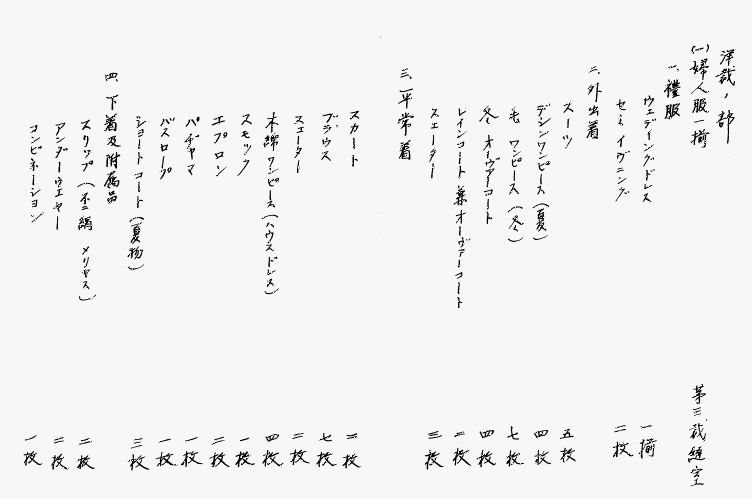 洋裁ノ部
(一) 婦人服一揃 第三裁縫室
一、禮服
ウェディングドレス 一揃
セミイヴニング 二枚
二、外出着
スーツ 五枚
デシンワンピース(夏) 四枚
毛ワンピース(冬) 七枚
冬オーヴァーコート 四枚
レインコート兼オーヴァーコート 二枚
スエーター 三枚
三、平常着
スカート 二枚
ブラウス 七枚
スエーター 二枚
木綿ワンピース(ハウスドレス) 四枚
スモック 一枚
エプロン 二枚
パヂャマ 一枚
バスローブ 一枚
ショートコート(夏物) 三枚
四、下着及附属品
スリップ(不二絹 メリヤス) 二枚
アンダーウエヤー 二枚
コンビネーション 一枚